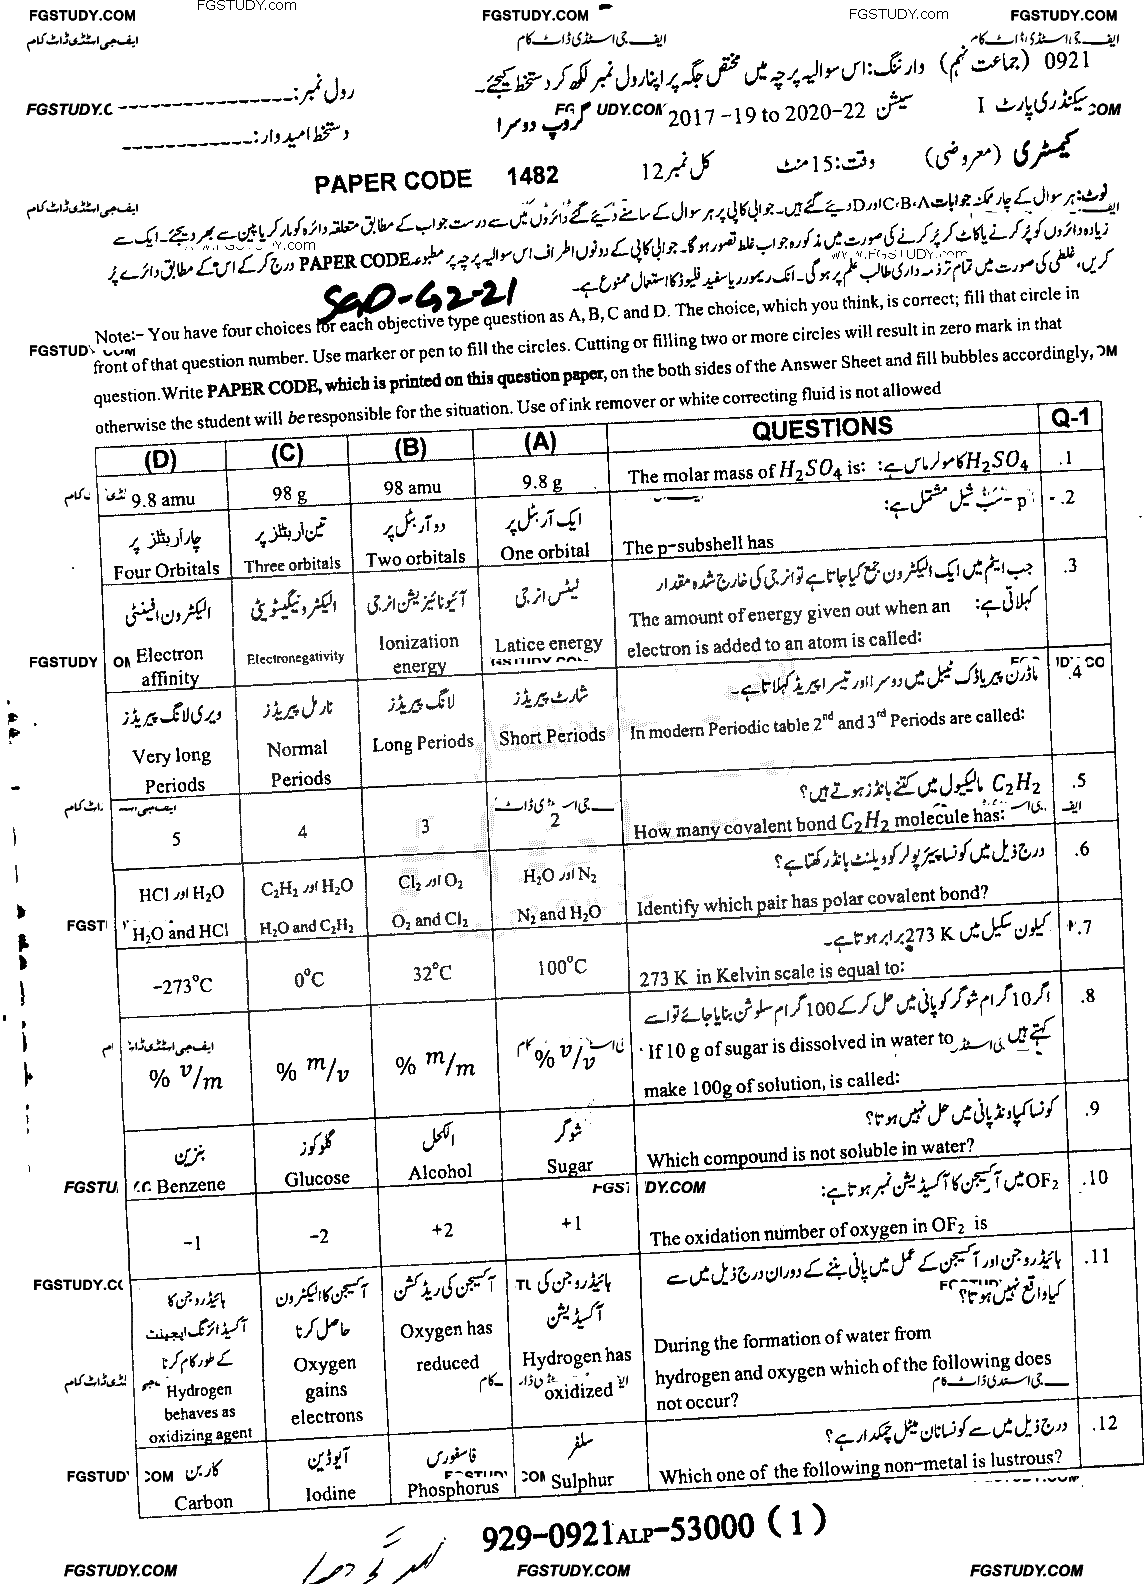 FGSTUDY.COM FGSTUDY.com FGSTUDY.COM FGSTUDY.com FGSTUDY.COM
ایف جی اسٹڈی ڈاٹ کام ایف جی اسٹڈی ڈاٹ کام ایف جی اسٹڈی ڈاٹ کام
0921 (جماعت نہم) وارننگ: اس سوالیہ پرچہ میں مختص جگہ پر اپنا رول نمبر لکھ کر دستخط کیجئے۔ رول نمبر:
سیکنڈری پارٹ I سیشن 2017 -19 to 2020-22 گروپ دوسرا دستخط امیدوار:
کیمسٹری (معروضی) وقت: 15 منٹ کل نمبر 12
PAPER CODE 1482
نوٹ: ہر سوال کے چار ممکنہ جوابات C، B، A اور D دیئے گئے ہیں۔ جوابی کاپی پر ہر سوال کے سامنے دیئے گئے دائروں میں سے درست جواب کے مطابق متعلقہ دائرہ کو مارکر یا پین سے بھر دیجئے۔ ایک سے
زیادہ دائروں کو پُر کرنے یا کاٹ کر پُر کرنے کی صورت میں مذکورہ جواب غلط تصور ہوگا۔ جوابی کاپی کے دونوں اطراف اس سوالیہ پرچہ پر مطبوعہ PAPER CODE درج کر کے اس کے مطابق دائرے پُر
کریں، غلطی کی صورت میں تمام تر ذمہ داری طالب علم پر ہوگی۔ انک ریمور ریا سفید فلیوڈ کا استعمال ممنوع ہے۔
SGD-G2-21
Note:- You have four choices for each objective type question as A, B, C and D. The choice, which you think, is correct; fill that circle in
front of that question number. Use marker or pen to fill the circles. Cutting or filling two or more circles will result in zero mark in that
question.Write PAPER CODE, which is printed on this question paper, on the both sides of the Answer Sheet and fill bubbles accordingly,
otherwise the student will be responsible for the situation. Use of ink remover or white correcting fluid is not allowed
(D) (C) (B) (A) QUESTIONS Q-1
9.8 amu 98 g 98 amu 9.8 g The molar mass of H₂SO₄ is: H₂SO₄ کا مولر ماس ہے: .1
چار آربٹلز پر تین آربٹلز پر دو آربٹل پر ایک آربٹل پر p - سب شیل مشتمل ہے: .2
Four Orbitals Three orbitals Two orbitals One orbital The p-subshell has
الیکٹرون افینٹی الیکٹرونیگیٹویٹی آئیونائزیشن انرجی لیٹس انرجی جب ایٹم میں ایک الیکٹرون جمع کیا جاتا ہے تو انرجی کی خارج شدہ مقدار کہلاتی ہے: .3
Electron affinity Electronegativity Ionization energy Latice energy The amount of energy given out when an
electron is added to an atom is called:
ویری لانگ پیریڈز نارمل پیریڈز لانگ پیریڈز شارٹ پیریڈز ماڈرن پیریاڈک ٹیبل میں دوسرا اور تیسرا پیریڈ کہلاتا ہے۔ .4
Very long Periods Normal Periods Long Periods Short Periods In modern Periodic table 2nd and 3rd Periods are called:
5 4 3 2 C₂H₂ مالیکیول میں کتنے بانڈز ہوتے ہیں؟ .5
How many covalent bond C₂H₂ molecule has:
H₂O اور HCl H₂O اور C₂H₂ O₂ اور Cl₂ N₂ اور H₂O درج ذیل میں کونسا پیئر پولر کوویلنٹ بانڈ رکھتا ہے؟ .6
H₂O and HCl H₂O and C₂H₂ O₂ and Cl₂ N₂ and H₂O Identify which pair has polar covalent bond?
-273°C 0°C 32°C 100°C کیلون سکیل میں 273 K برابر ہوتا ہے۔ .7
273 K in Kelvin scale is equal to:
% v/m % m/v % m/m % v/v اگر 10 گرام شوگر کو پانی میں حل کر کے 100 گرام سلوشن بنایا جائے تو اسے کہتے ہیں .8
If 10 g of sugar is dissolved in water to
make 100g of solution, is called:
بنزین گلوکوز الکحل شوگر کونسا کمپاونڈ پانی میں حل نہیں ہوتا؟ .9
Benzene Glucose Alcohol Sugar Which compound is not soluble in water?
-1 -2 +2 +1 OF₂ میں آکسیجن کا آکسیڈیشن نمبر ہوتا ہے: .10
The oxidation number of oxygen in OF₂ is
ہائیڈروجن کا آکسیڈائزنگ ایجنٹ کے طور کام کرنا آکسیجن کا الیکٹرون حاصل کرنا آکسیجن کی ریڈکشن ہائیڈروجن کی آکسیڈیشن ہائیڈروجن اور آکسیجن کے عمل میں پانی بننے کے دوران درج ذیل میں سے کیا واقع نہیں ہوتا؟ .11
Hydrogen behaves as oxidizing agent Oxygen gains electrons Oxygen has reduced Hydrogen has oxidized During the formation of water from
hydrogen and oxygen which of the following does
not occur?
کاربن آیوڈین فاسفورس سلفر درج ذیل میں سے کونسا نان میٹل چمکدار ہے؟ .12
Carbon Iodine Phosphorus Sulphur Which one of the following non-metal is lustrous?
929-0921ALP-53000 (1)
FGSTUDY.COM FGSTUDY.COM FGSTUDY.COM